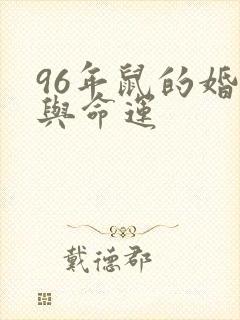 96年鼠的婚
與命運
戴德郡